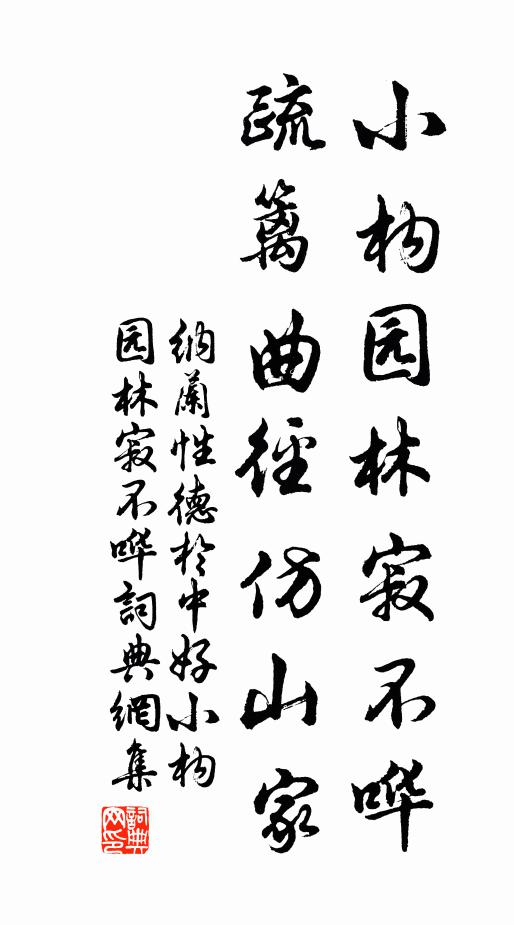 小构园林寂不哗
疏篱曲径仿山家
纳兰性德於中好小构
园林寂不哗词典网集
詞典网印